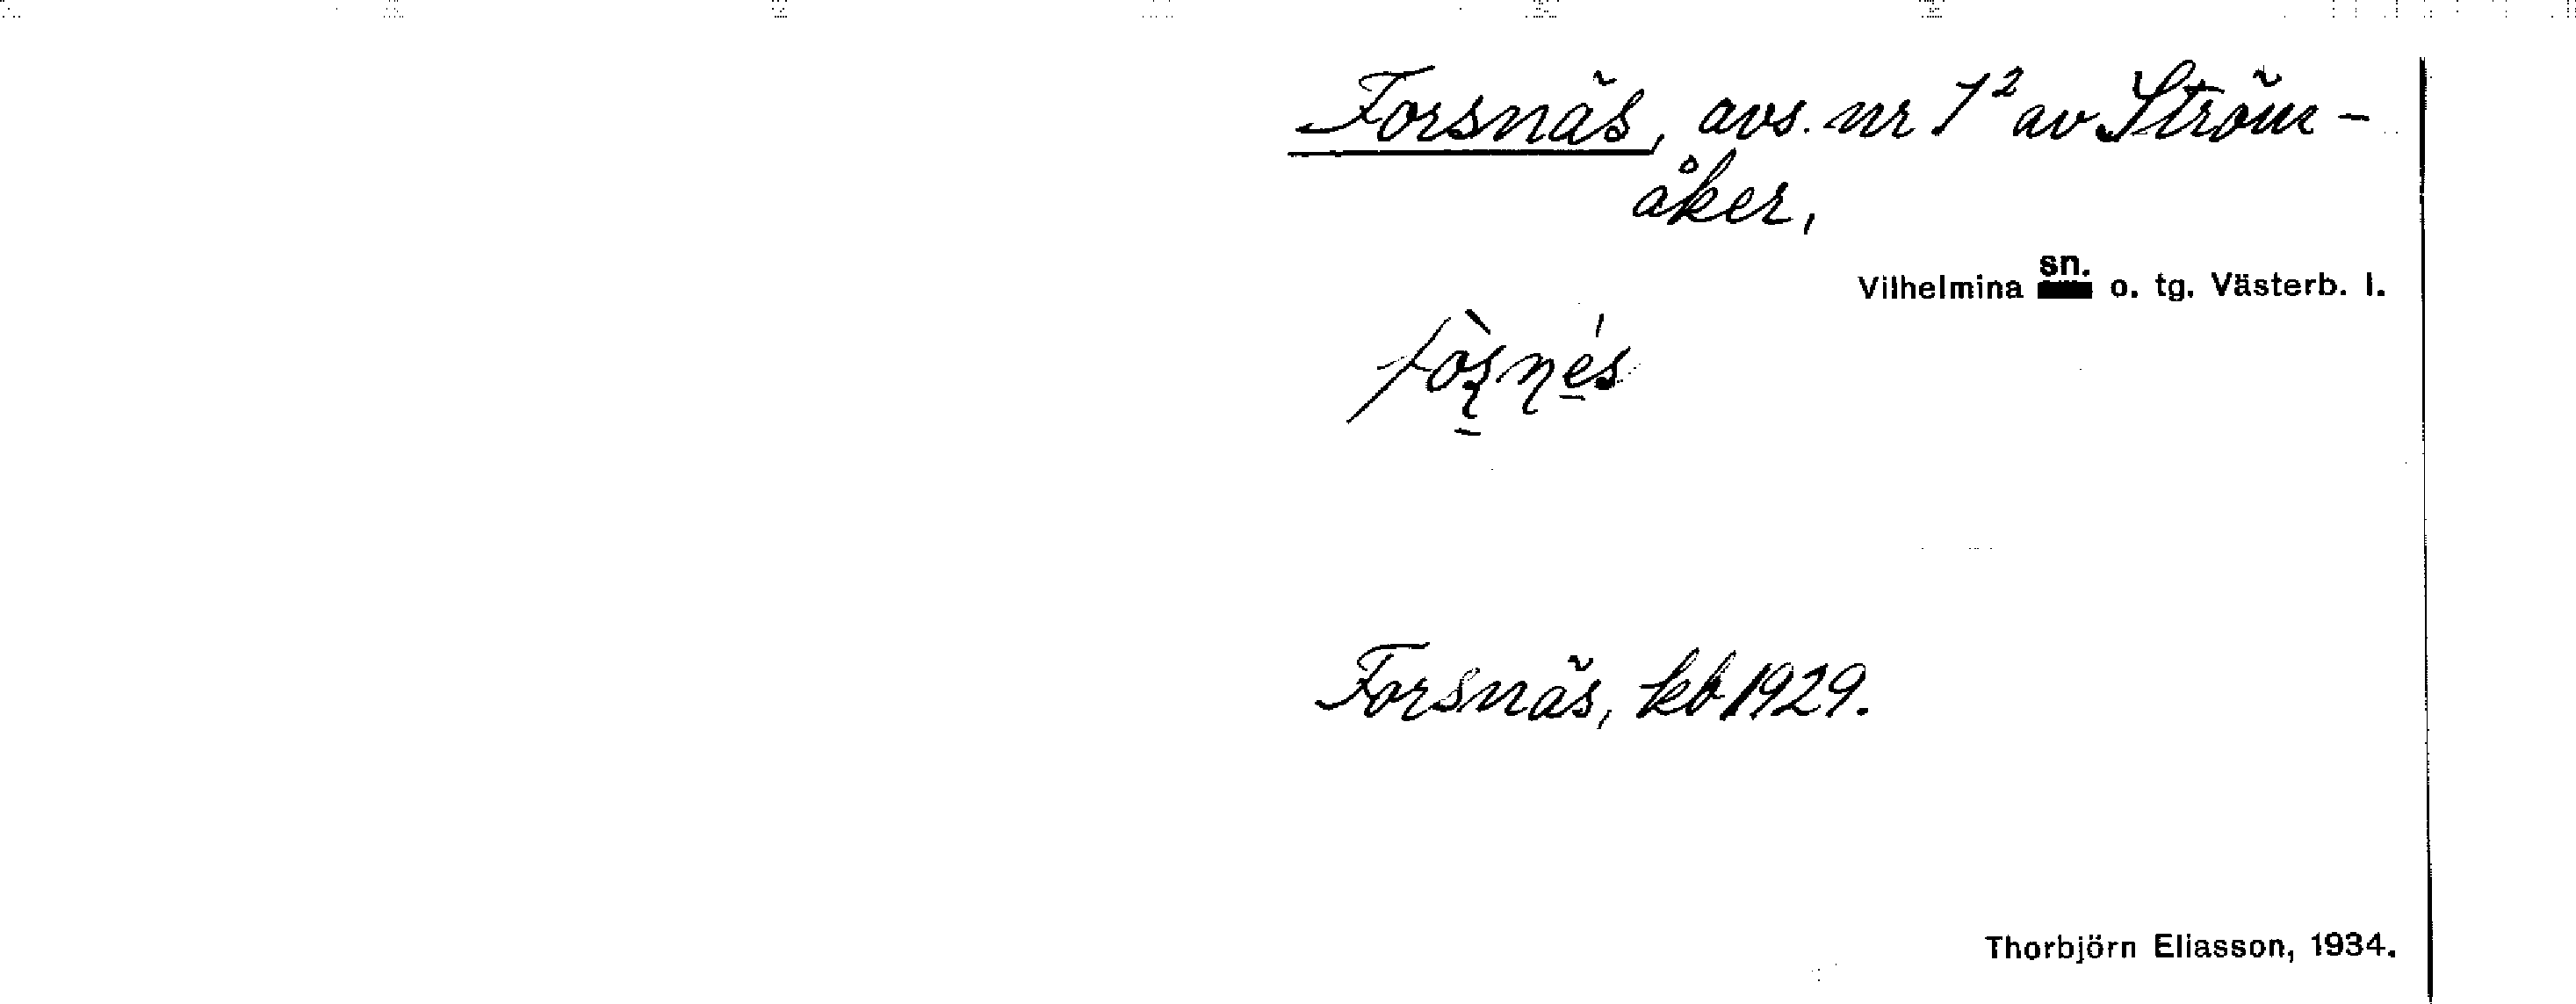 Forsnäs, avs. nr 1² av Ström-
åker,
Vilhelmina sn. o. tg. Västerb. l.
Forsnäs, kb 1929.
Thorbjörn Eliasson, 1934.